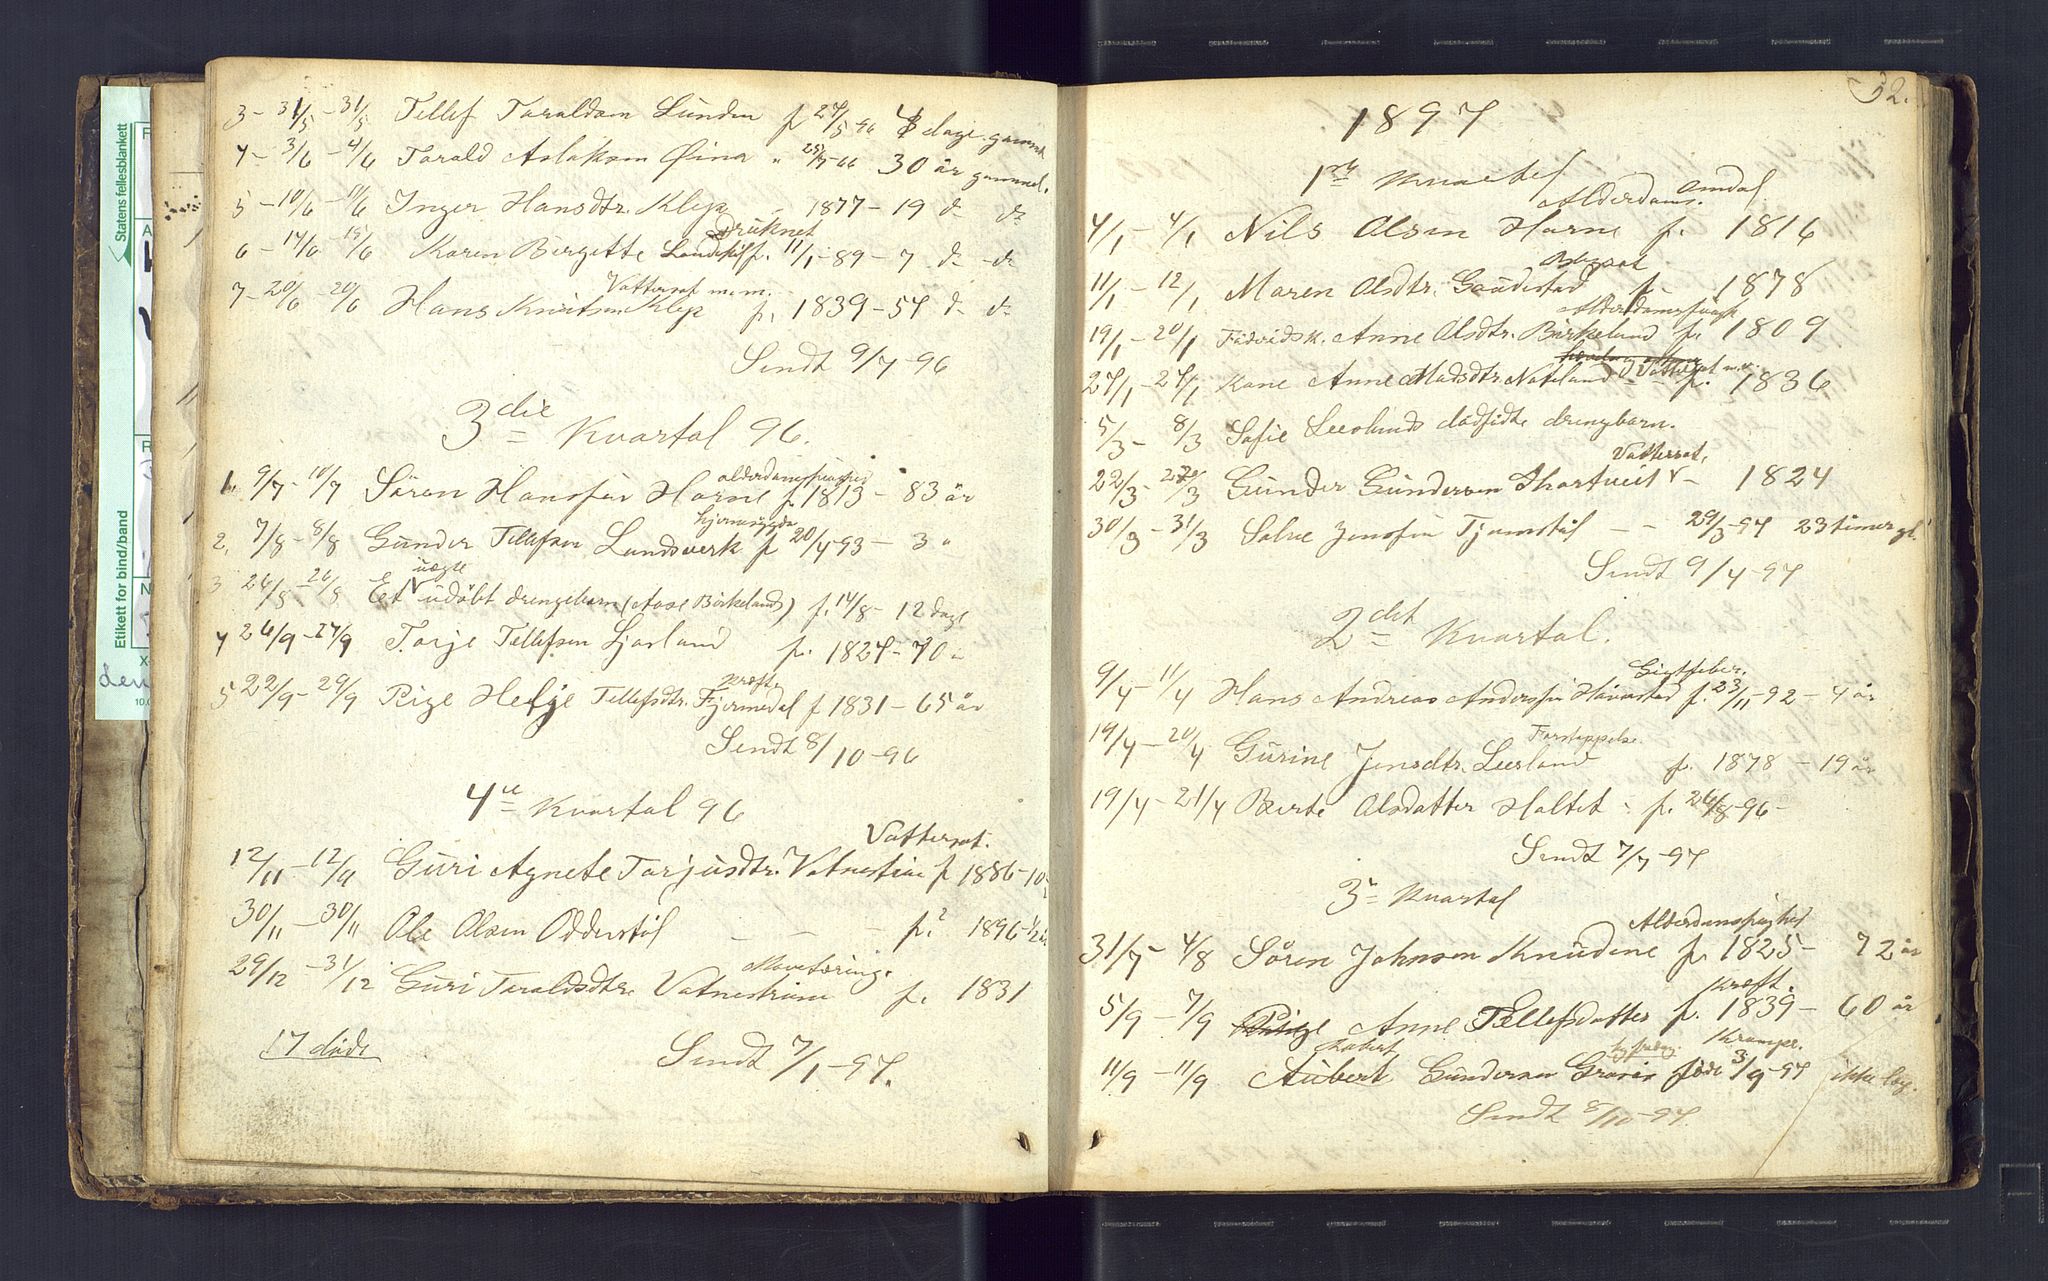 3 - 31/5 - 31/5 Tellef Taraldsen Lunden f 27/5 96 4 dage gammel
4 - 3/6 - 4/6 Tarald Aslaksen Øina " 66 30 år gammel.
5 - 10/6 - 11/6 Inger Hansdtr. Klep - 1877 - 19 do do
druknet
6 - 14/6 - 15/6 Karen Birgitte f. 11/1 - 89 - 7 do do
Vattersot m.m.
7 - 20/6 - 20/6 Hans Knutsen Klep f. 1839 - 57 do do
Sendt 9/7 - 96
3die Kvartal 96.
alderdomssvaghed
1. 9/7 - 10/7 Sören Hansen Horne f 1813 - 83 år
hjernesygdo
2. 7/8 - 8/8 Gunder Tellefsen Landsverk f 20/4 93 - 3 "
uægte
3 26/8 - 26/8 Et udöbt drengebarn (Aase Birkelands) f. 14/8 - 12 dage
4 26/9 - 27/9 Torje Tellefsen Ljosland f. 1827 - 70 "
Kræft
5 22/9 - 29/9 Pige Helje Tellefsdtr. Fjermedal f 1831 - 65 år
Sendt 8/10 - 96
4de Kvartal 96
Vattersot.
12/11 - 12/11 Guri Agnete Torjusdtr. Vatnestrøm f 1886 - 10
30/11 - 30/11 Ole Olsen Odderstöl - - - f. ? 1896 - 1/2 år
Mavetæring.
29/12 - 31/12 Guri Taraldsdtr. Vatnestrøm f. 1831
17 döde
Sendt 7/1 - 97.
32.
1897
1ste Kvartal
Alderdoms. Omdal
4/1 - 4/1 Nils Olsen Horne f. 1816
11/1 - 12/1 Maren Olsdtr. Gaudestad f - 1878
Alderdomssvagh
19/1 - 20/1 Anne Olsdtr. Birkeland f. 1809
Vattersot m.v.
27/1 - 27/1 Kone Anne Madsdtr. Nateland - - f. 1836
5/3 - 8/3 Sofie Leeslands dödfödte drengebarn.
Vattersot.
22/3 - /3 Gunder Gundersen Skortveit - 1824
30/3 - 31/3 Salve Jensen Tjomstöl - - 29/3 - 97 23 timer gl.
Sendt 9/4 - 97
2det Kvartal.
Gigtfeber.
9/4 - 11/4 Hans Andreas Anderssen Håverstad f. 23/11 - 92 - 4 år
Forstoppelse.
19/4 - 20/4 Gurine Jensdtr. Leesland f. 1878 - 19 år
19/4 - 21/4 Berte Olsdatter Holtet - f. 26/8 - 96 -
Sendt 7/7 - 97
3die Kvartal
Alderdomssvaghed
31/7 - 4/8 Sören Johnsen Knudene f. 1825 - 72 år
Kræft.
5/9 - 7/9 Pige Anne Tellefsdatter f. 1839 - 60 år
Robert Krampe.
11/9 - 11/9 Aubert Gundersen föde 3/9 - 97 ikke læg.
Sendt 8/10 - 97.
Statens fellesblankett
Etikett for bind/band